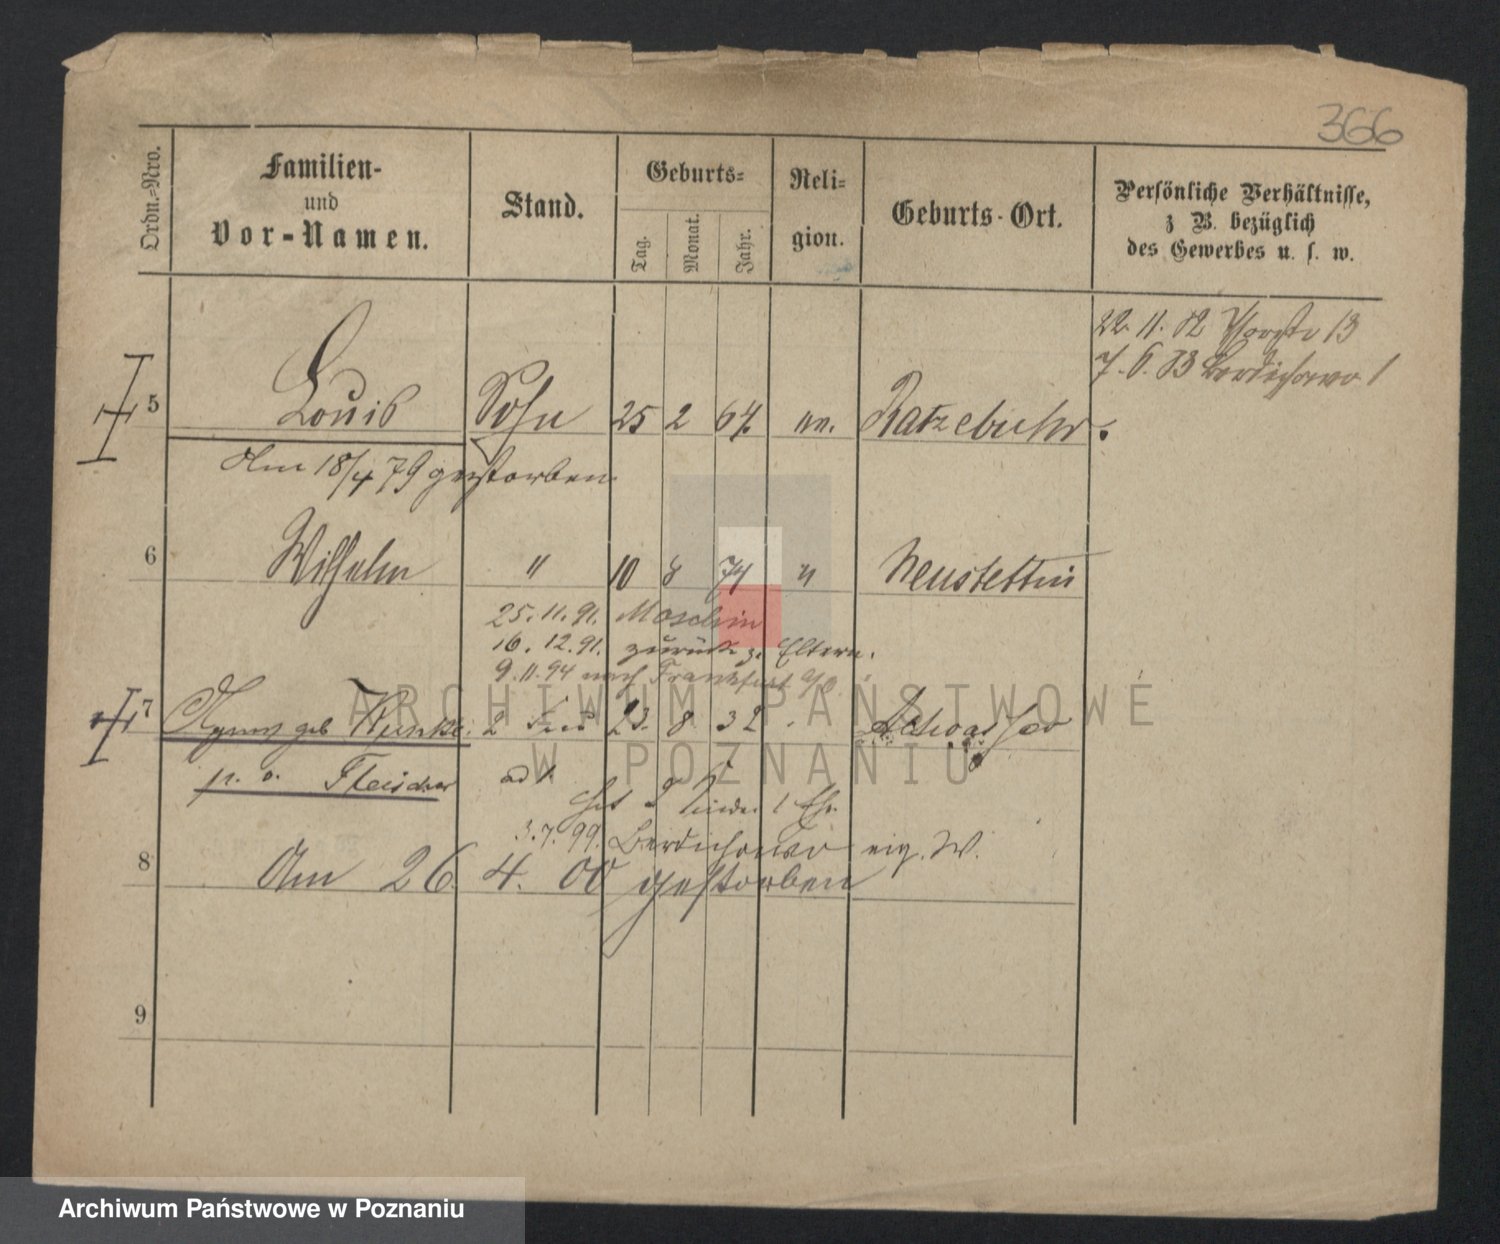 366
Ordn.-Nro.
Familien-
und
Vor-Namen.
Stand.
Geburts-
Tag.
Monat.
Jahr.
Reli-
gion.
Geburts-Ort.
Persönliche Verhältnisse,
z B. bezüglich
des Gewerbes u. s. w.
22. 11. 82 13
7. 6. 83 Berdichowo 1
5 Louis Sohn 25 2 64 ev. Ratzebuhr.
Am 18/4 79 gestorben
6 Wilhelm " 10 8 74 " Neustettin
25. 11. 91. Moschin
16. 12. 91. zurück z. Eltern.
9. 11. 94 nach Frankfurt a/O.
7 geb 2 Frau 23. 8. 32
ad 1.
hat 2 Kinder 1 Ehe
3. 7. 99. Berdichowo eig. W.
8 Am 26. 4. 00 gestorben
9
ARCHIWUM PAŃSTWOWE
W POZNANIU
Archiwum Państwowe w Poznaniu